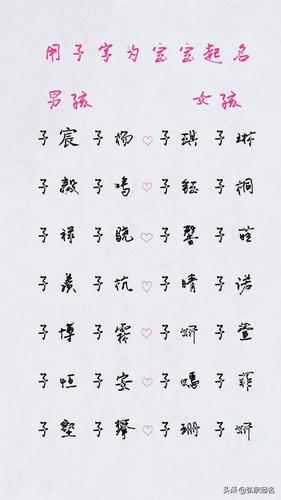 用子字为宝宝起名
男孩 女孩
子宸 子杨 ♡ 子琪 子琳
子毅 子鸣 ♡ 子钰 子桐
子祥 子骁 ♡ 子馨 子暄
子羡 子杭 ♡ 子晴 子诺
子博 子霖 ♡ 子妍 子萱
子恒 子安 ♡ 子嫣 子菲
子墅 子攀 ♡ 子珊 子妍
头条@弘宗起名